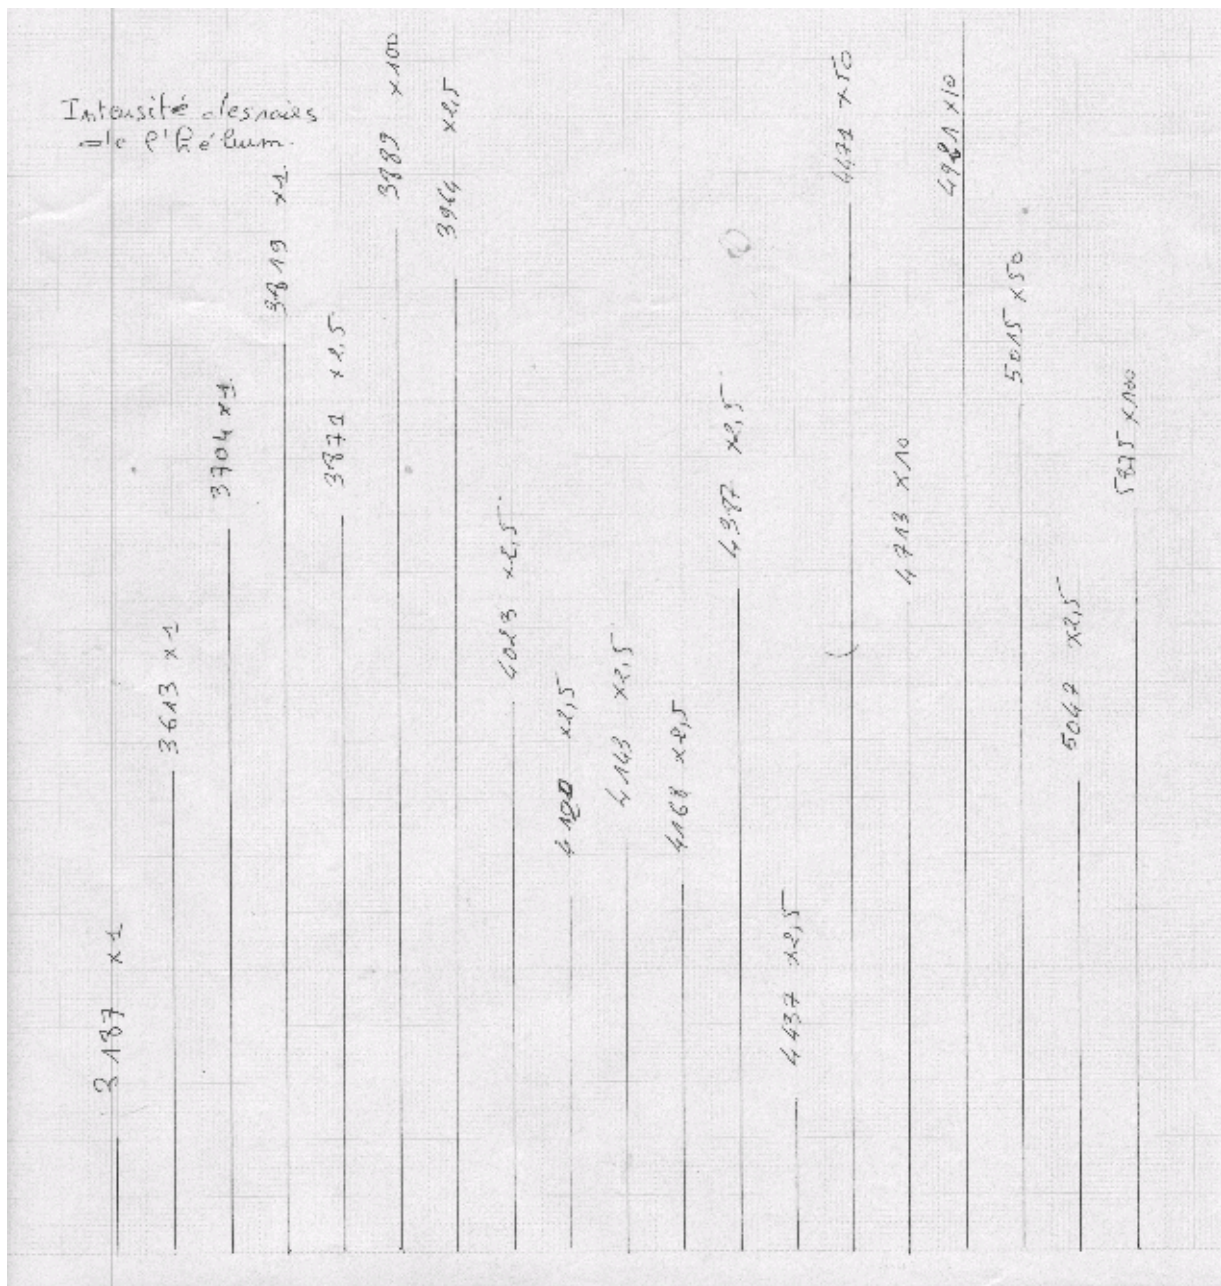 Intensité des raies
de l'hélium.
3187 x1
3613 x1
3704 x1
3819 x1
3871 x2,5
3889 x100
3964 x2,5
4023 x2,5
4120 x2,5
4143 x2,5
4168 x2,5
4387 x2,5
4437 x2,5
4471 x50
4713 x10
4921 x10
5015 x50
5047 x2,5
5875 x100